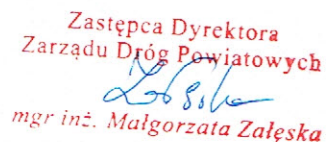 Zastępca Dyrektora
Zarządu Dróg Powiatowych
mgr inż. Małgorzata Załęska